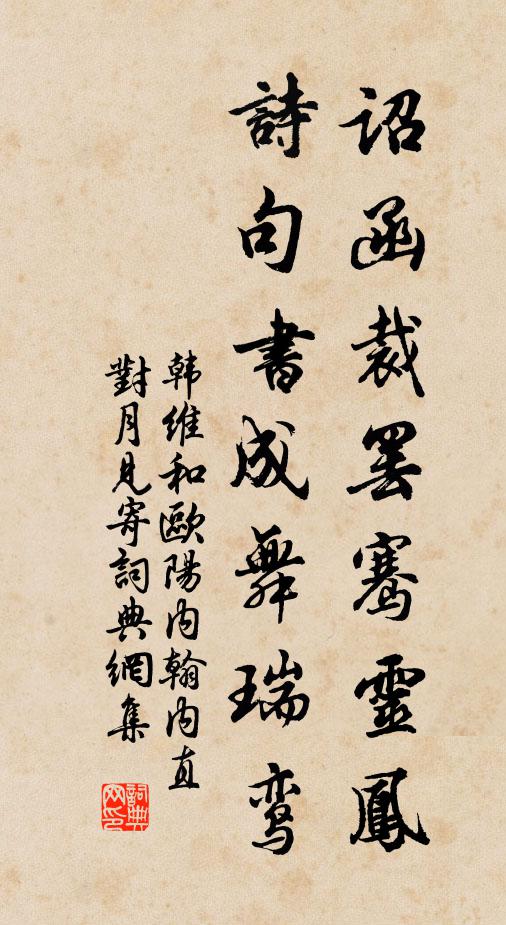 詔函裁罷騫靈鳳
詩句書成舞瑞鸾
韩維和歐陽内翰内直
對月見寄詞典網集
詞典网印